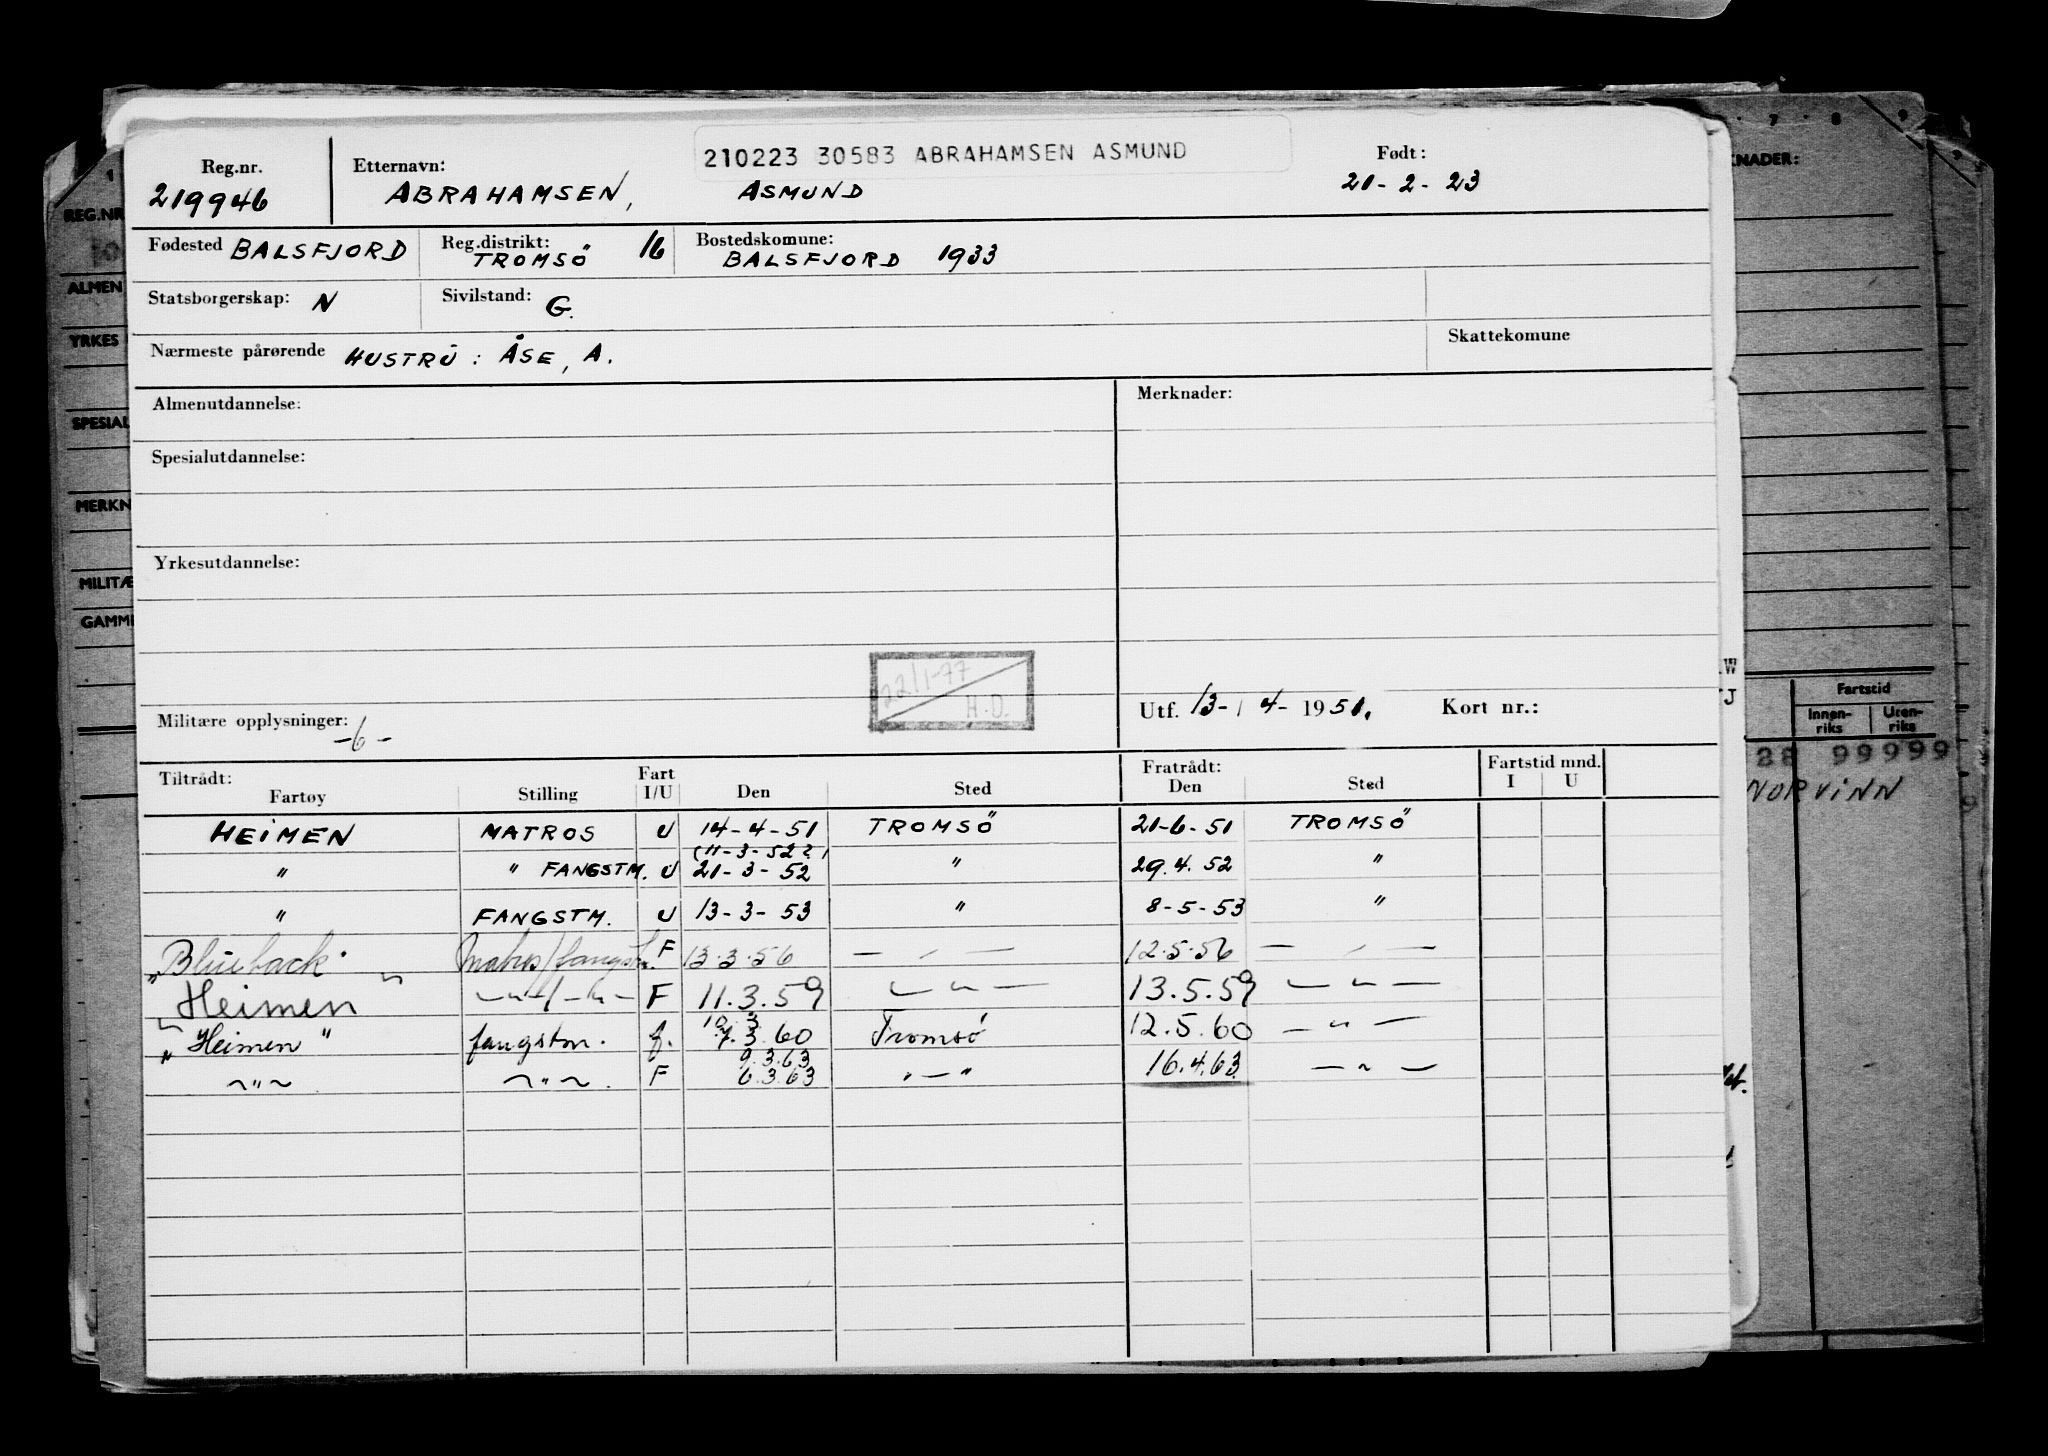 210223 30583 ABRAHAMSEN ASMUND
Reg.nr. Etternavn: Født:
219946 ABRAHAMSEN, ASMUND 21-2-23
Fødested BALSFJORD Reg.distrikt: TROMSÖ 16 Bostedskomune: BALSFJORD 1933
Statsborgerskap: N Sivilstand: G.
Nærmeste pårørende HUSTRU: ÅSE, A. Skattekomune
Almenutdannelse: Merknader:
Spesialutdannelse:
Yrkesutdannelse:
22/1-77
H.D.
Militære opplysninger: -6- Utf. 13-4-1951. Kort nr.:
Tiltrådt: Fart Fratrådt: Fartstid mnd.
Fartøy Stilling I/U Den Sted Den Sted I U
HEIMEN MATROS U 14-4-51 TROMSÖ 21-6-51 TROMSÖ
(11-3-52?)
" " FANGSTM. U 21-3-52 " 29.4.52 "
" FANGSTM. U 13-3-53 " 8-5-53 "
"Blueback" matros/fangstm. F 13.3.56 — " — 12.5.56 — " —
"Heimen" —"—/—"— F 11.3.59 — " — 13.5.59 — " —
10.3.
"Heimen" fangstm. f. 7.3.60 Tromsö 12.5.60 — " —
9.3.63
— " — — " —. F 6.3.63 " — " 16.4.63 — " —
7 8 9
KNADER:
REG.NR
ALMEN
YRKES
SPESIAL
MERKN
MILITÆ
GAMME
W
J
Fartstid
Innen-riks Uten-riks
88 99999
NORVINN